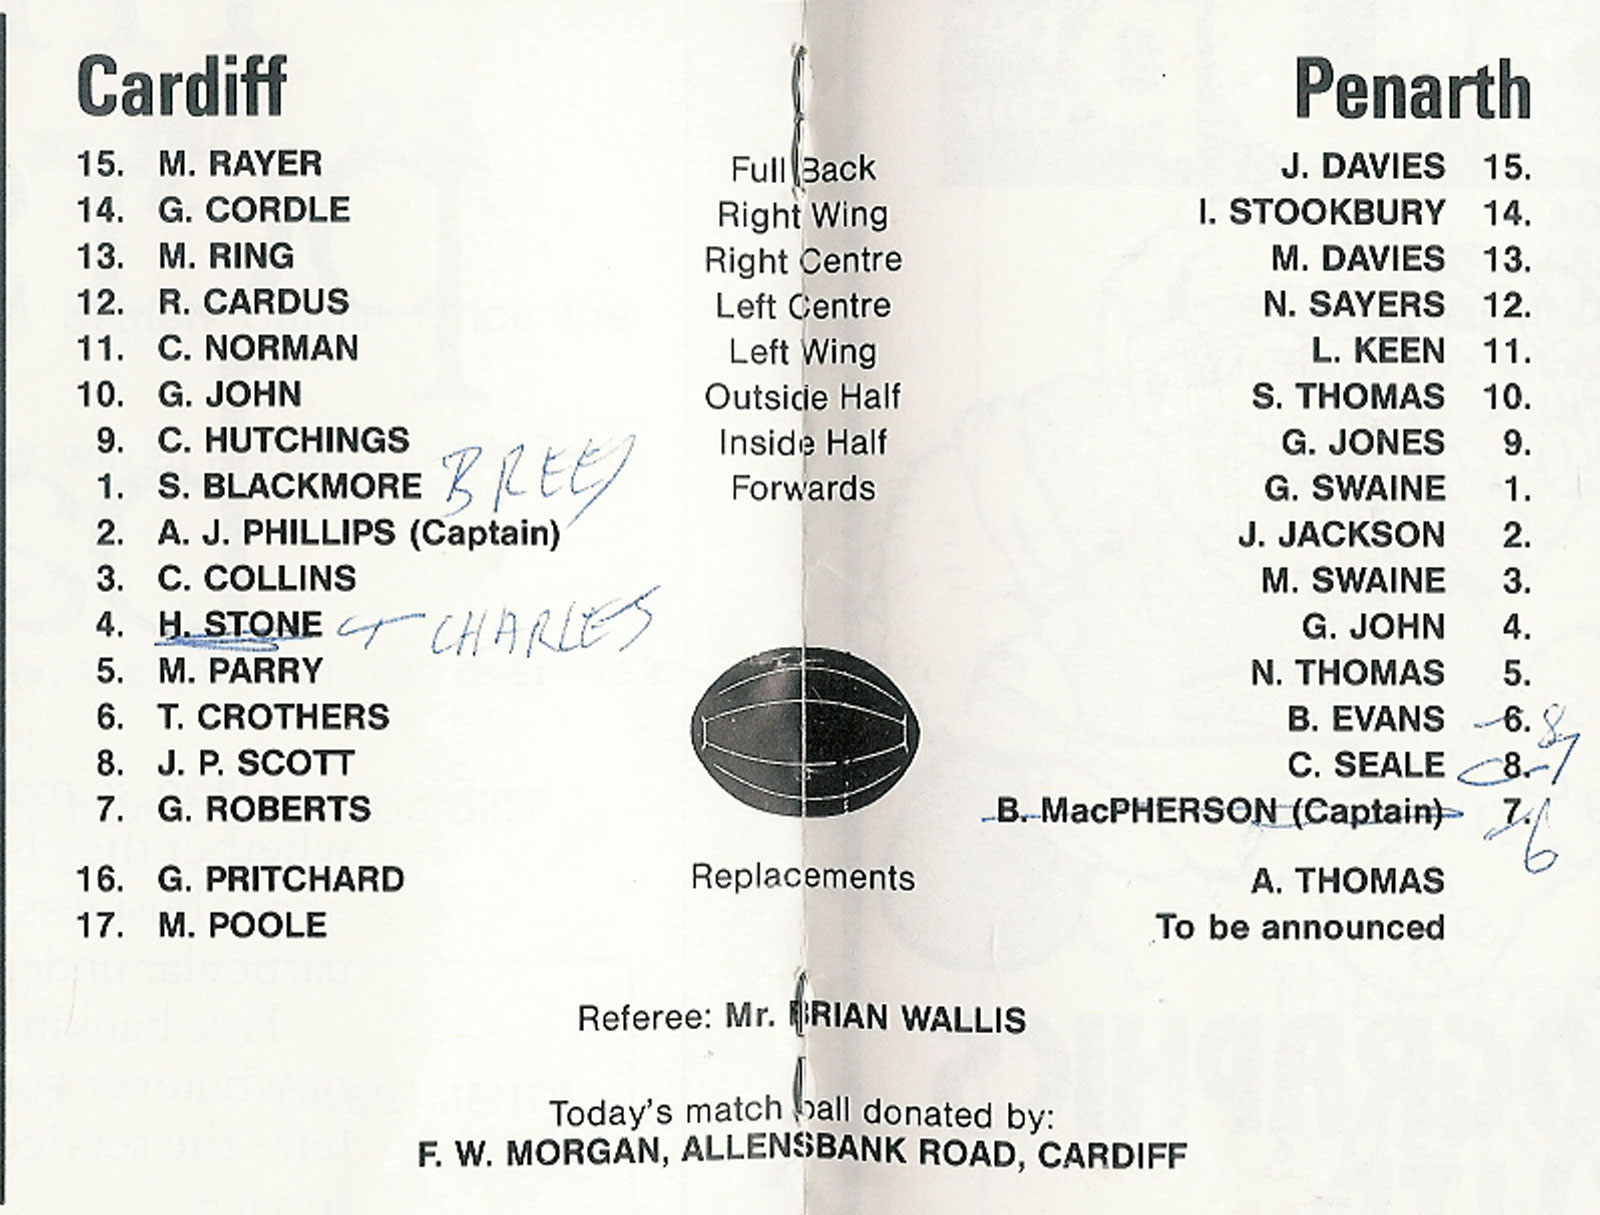 Cardiff Penarth
15. M. RAYER Full Back J. DAVIES 15.
14. G. CORDLE Right Wing I. STOOKBURY 14.
13. M. RING Right Centre M. DAVIES 13.
12. R. CARDUS Left Centre N. SAYERS 12.
11. C. NORMAN Left Wing L. KEEN 11.
10. G. JOHN Outside Half S. THOMAS 10.
9. C. HUTCHINGS Inside Half G. JONES 9.
1. S. BLACKMORE B REES Forwards G. SWAINE 1.
2. A. J. PHILLIPS (Captain) J. JACKSON 2.
3. C. COLLINS M. SWAINE 3.
4. H. STONE T CHARLES G. JOHN 4.
5. M. PARRY N. THOMAS 5.
6. T. CROTHERS B. EVANS 6. 8
8. J. P. SCOTT C. SEALE 8. 7
7. G. ROBERTS B. MacPHERSON (Captain) 7. 6
16. G. PRITCHARD Replacements A. THOMAS
17. M. POOLE To be announced
Referee: Mr. BRIAN WALLIS
Today's match ball donated by:
F. W. MORGAN, ALLENSBANK ROAD, CARDIFF